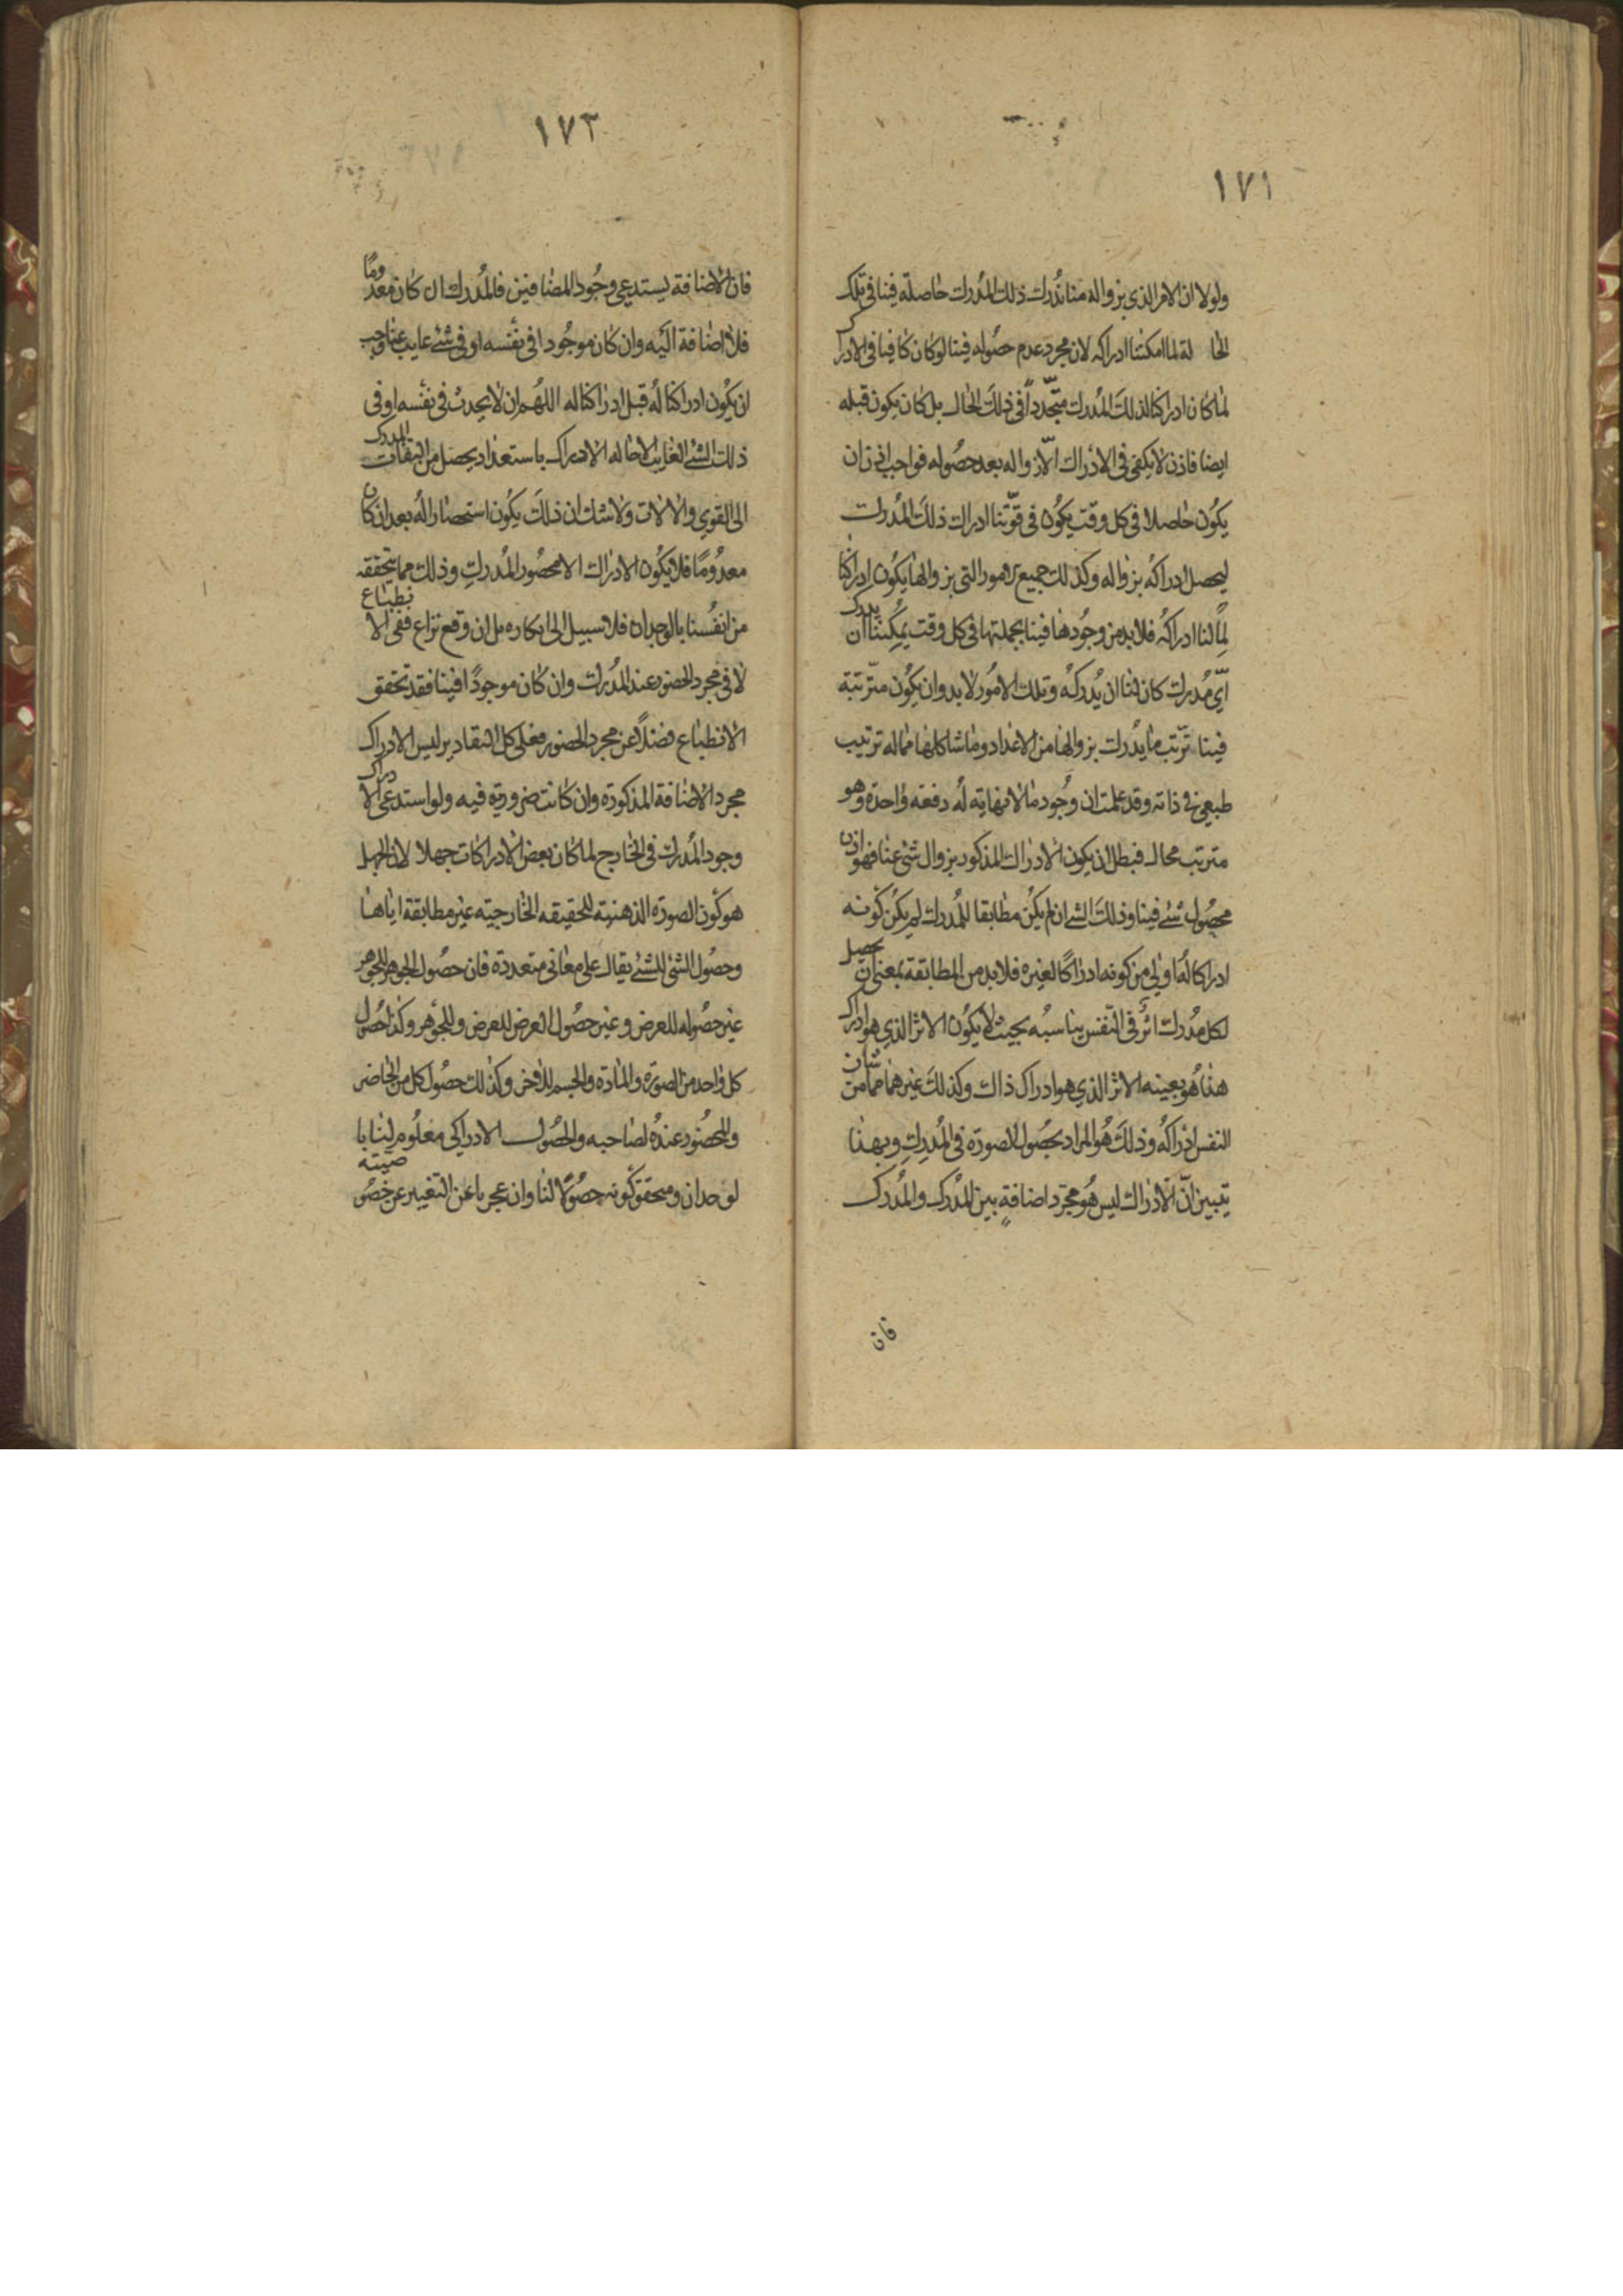 ١٧١
ولولا ان الامر الذي بزواله منا ندرك ذلك المدرك حاصلة فينا في تلك
الحا لة لما امكننا ادراكه لان مجرد عدم حصوله فينا لو كان كافيا في الادراك
لما كان ادراكنا لذلك المدرك متجّدداً في ذلك الحال بل كان يكون قبله
ايضا فاذن لا يكفي في الادراك الّا زواله بعد حصوله فواجب اذن ان
يكون حاصلا في كل وقت يكون في قوّتنا ادراك ذلك المدرك
ليحصل ادراكه بزواله وكذلك جميع الامور التي بزوالها يكون ادراكنا
لما لنا ادراكه فلا بد من وجودها فينا بجملتها في كل وقت يمكننا ان ندرك
ايّ مدرك كان لنا ان يدركه وتلك الامور لا بد وان يكون مترّتبة
فينا ترّتب ما يدرك بزوالها من الاعداد وما شاكلها مما له ترتيب
طبيعي في ذاته وقد علمت ان وجود ما لا نهاية له دفعة واحدة وهو
مترتب محال فبطل ان يكون الادراك المذكور بزوال شئ عنا فهو اذن
بحصول شئ فينا وذلك الشئ ان لم يكن مطابقا للمدرك لم يكن كونه
ادراكا له اولي من كونه ادراكًا لغيره فلا بد من المطابقة بمعنى ان يحصل
لكل مدرك اثر في النفس يناسبه بحيث لا يكون الاثر الذي هو ادراك
هذا هو بعينه الاثر الذي هو ادراك ذاك وكذلك غيرهما مما من شان
النفس ادراكه وذلك هو المراد بحصول الصورة في المدرِك وبهذا
يتبين انّ الادراك ليس هو مجرّد اضافةٍ بين المدرِك والمدرَك
فان
١٧٣
فان الاضافة يستدعي وجود المضافين فالمدرك ان كان معدوما
فلا اضافة اليه وان كان موجودا في نفسه او في شئ غايب عنا وجب
ان يكون ادراكنا له قبل ادراكنا له اللهم ان لا يحدث في نفسه او في
ذلك الشئ الغايب الا حاله الادراك باستعداد يحصل من التفات المدرك
الى القوي والالات ولا شك ان ذلك يكون استحضارا له بعد ان كان
معدومًا فلا يكون الادراك الا بحضور المدرك وذلك مما يتحققه
من انفسنا بالوجدان فلا سبيل الى انكاره بل ان وقع نزاع ففي الا نطباع
لا في مجرد الحضور عند المدرك وان كان موجودًا فينا فقد تحقق
الانطباع فضلًا عن مجرد الحضور فعلى كل التقادير ليس الادراك
مجرد الاضافة المذكورة وان كانت ضرورية فيه ولو استدعى الا دراك
وجود المدرك في الخارج لما كان بعض الادراكات جهلا لان الجهل
هو كون الصورة الذهنية للحقيقه الخارجية غير مطابقة اياها
وحصول الشئ للشئ يقال على معاني متعددة فان حصول الجوهر للجوهر
غير حصوله للعرض وغير حصول العرض للعرض وللجوهر وكذا حصول
كل واحد من الصورة والمادة والجسم للاخر وكذلك حصول كل من الحاضر
والمحضور عنده لصاحبه والحصول الادراكي معلوم لنا با
لوجدان ومحقق كونه حصولًا لنا وان عجزنا عن التعبير عن خصو صيته